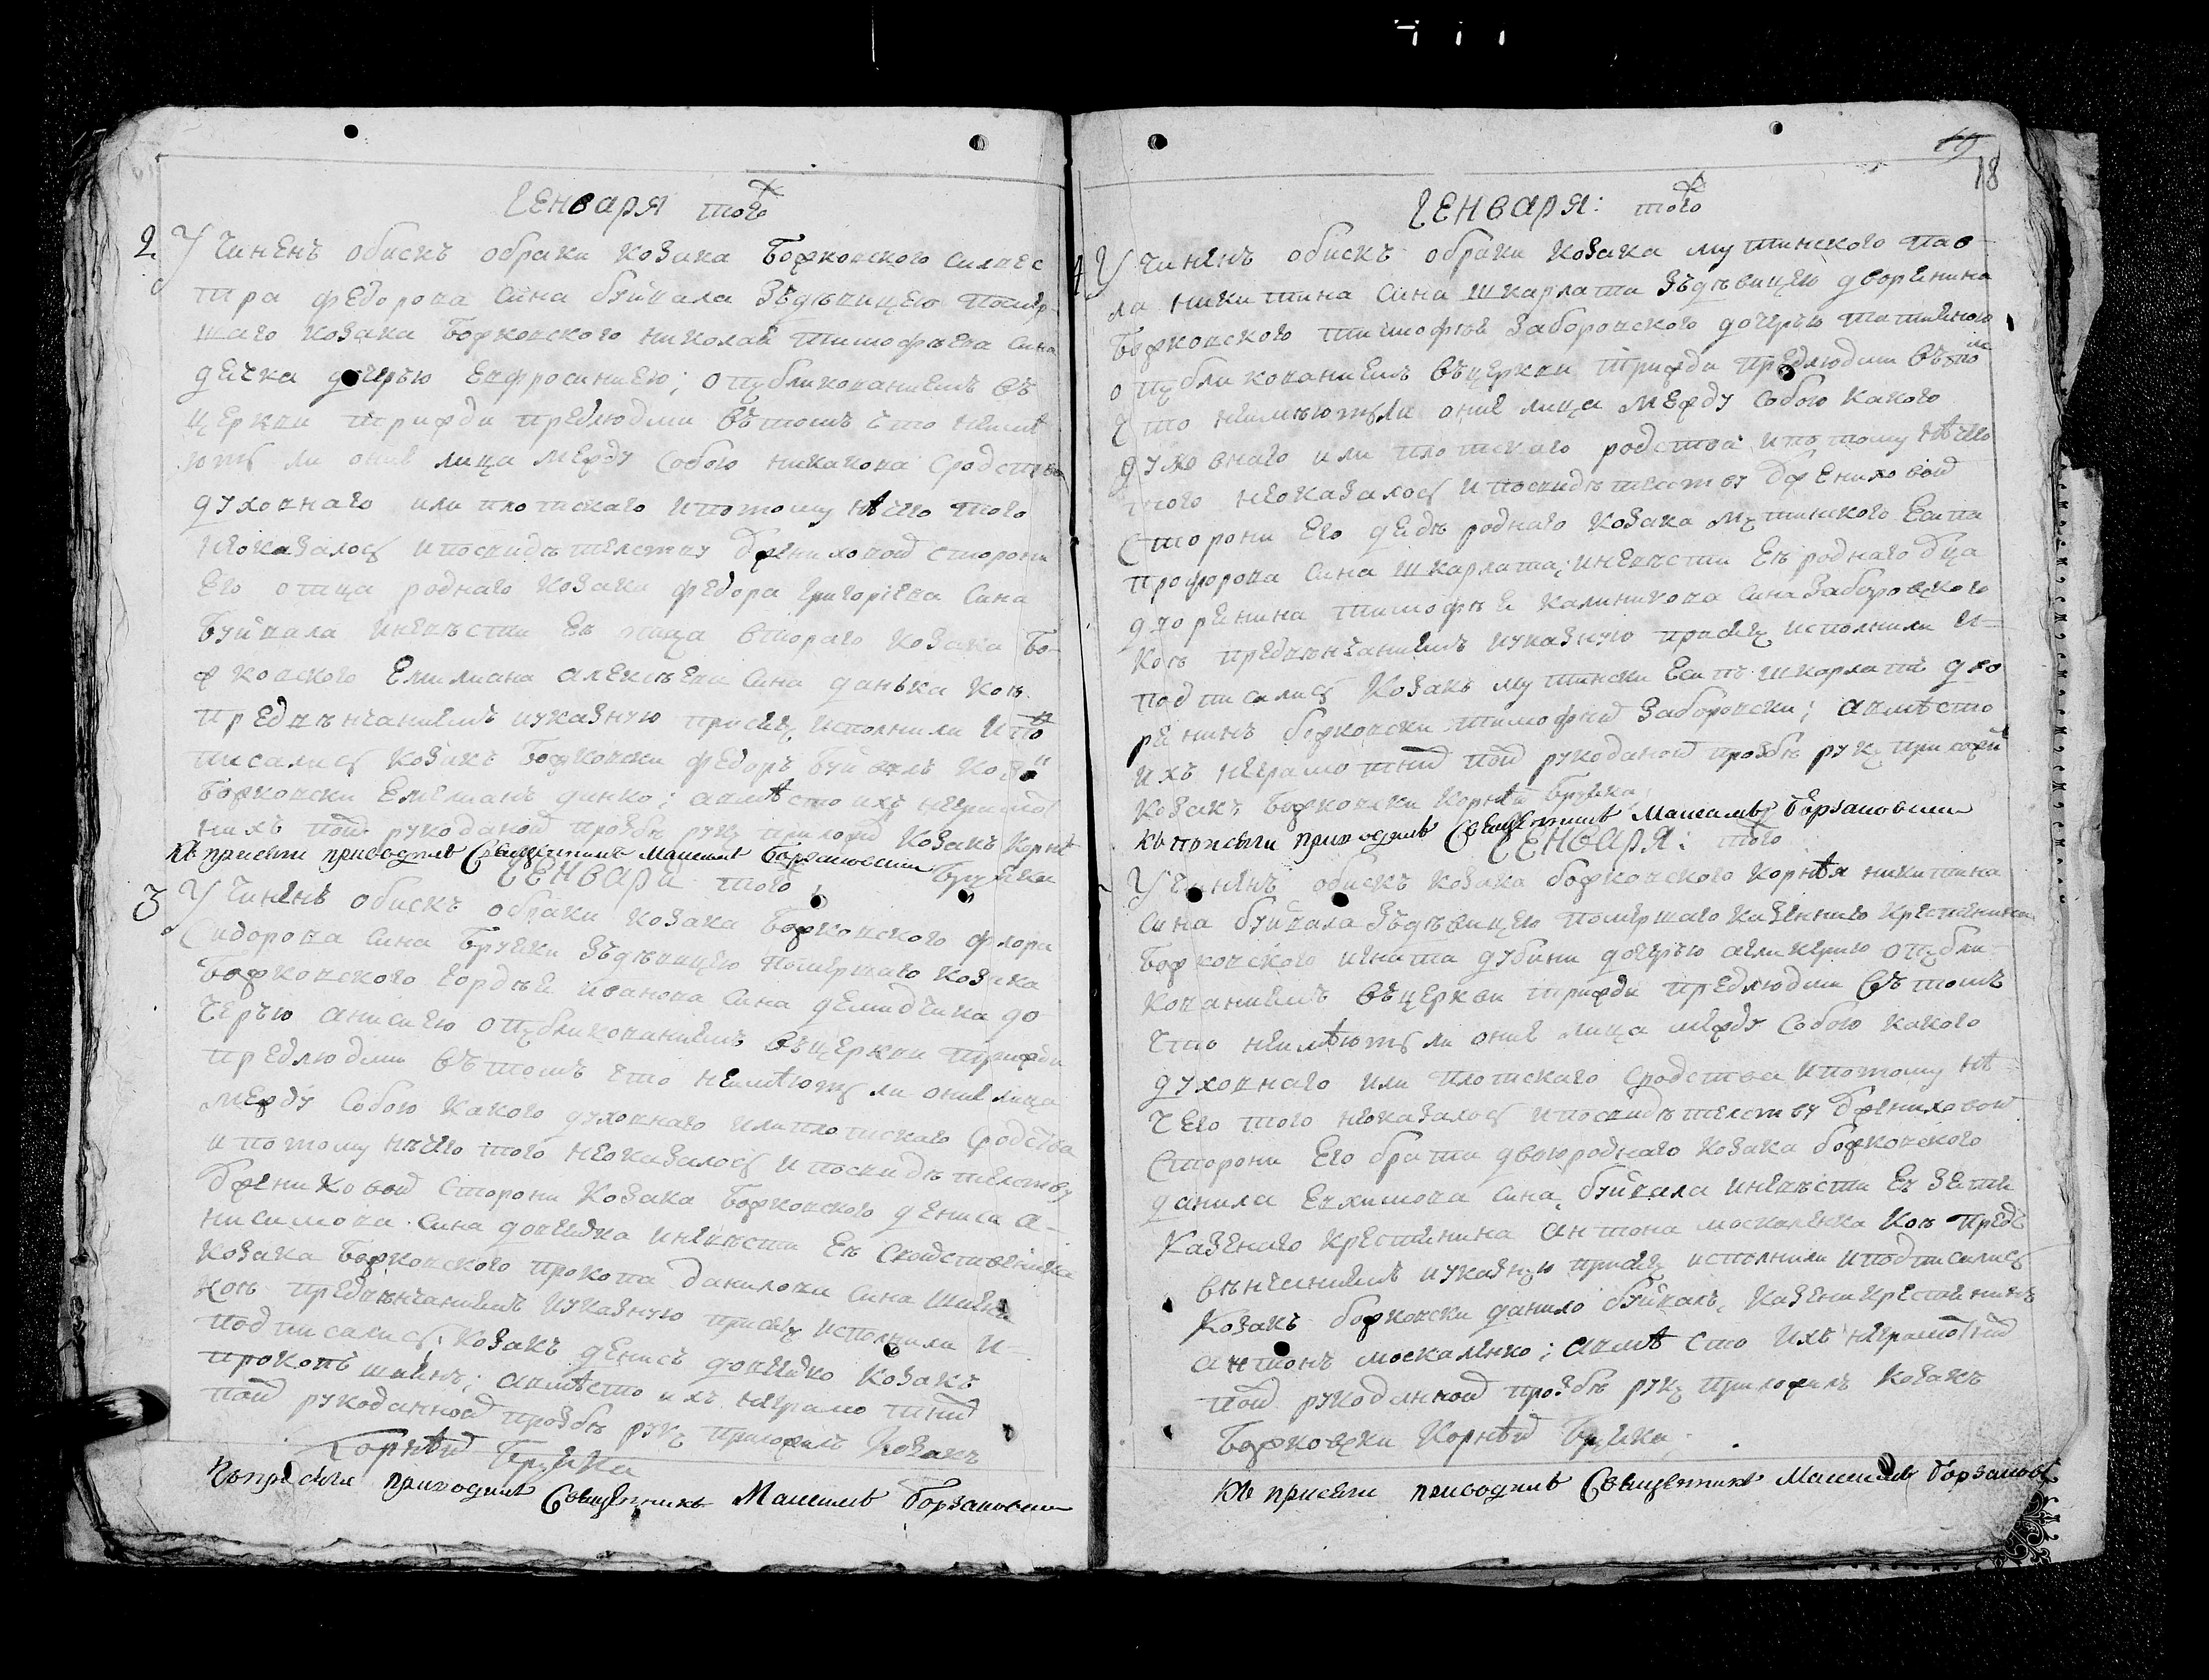 Генваря того ж
2 Учиненъ обискъ обраки козака Божковского Силвес
тра федорова сина буйвала зъдѣвицею помер-
шаго козака Божковского николая тимофѣева сина
дечка дочерью Евфросиниею; опубликованиемъ въ
церкви трижди предлюдми вътомъ что неимѣ
ютъ ли оние лица между собою никакова сродства
духовнаго или плотскаго ипотому нѣчего того
неоказалось ипосвидѣтелству бжениховой сторони
Его отца роднаго козака федора григориева сина
Буйвала иневѣсти Еѣ отца второго козака Бо-
жковского Емилиана алексѣева сина данька коѣ
предвѣнчаниемъ иуказную присягу исполнили ипод
писались козакъ Божковски федоръ буйвалъ козакъ
Божковски Емелианъ динко; авмѣсто ихъ неграмот
нихъ пой рукоданой прозбѣ руку приложй козакъ Корнѣ
Къ присяги приводилъ Священникъ Маѯимъ Борзаковски Бруека
Генваря того
3 Учиненъ обискъ обраки козака Божковского флора
Сидорова сина Бруеки зъдѣвицею помершаго козака
Божковского гордѣя иванова сина демидчика до
черью анисиею опубликованиемъ въцеркви трижди
предлюдми вътомъ что неимѣютъ ли оние лица
между собою какого духовнаго илиплотскаго сродства
ипотому нѣчего того неоказалось ипосвидѣтелству
бжениховой сторони козака Божковского дениса а-
нисимова сина довгидка иневѣсти Еѣ свойственника
козака Божковского прокопа данилова сина
коѣ предвѣнчаниемъ иуказную присягу исполнили и-
подписались; козакъ денисъ довгидко козакъ
прокопъ; авмѣсто ихъ неграмотний
пой рукоданной прозбѣ руку приложилъ козакъ
Корнѣй Бруека
Къ присяги приводилъ Священникъ Маѯимъ Борзаковски
19
18
Генваря: того ж
4 Учиненъ обискъ обраки козака мутинского пав-
ла никитина сина шкарлати зъдѣвицею дворенина
Божковского тимофѣя заборовского дочерью татияною
опубликованиемъ въцеркви трижди предлюдми вътом
что неимѣютъли оние лица между собою какого
духовнаго или плотскаго родства ипотому нѣчего
того неоказалось ипосвидѣтелству бжениховой
сторони Его деда роднаго козака мутинского Есипа
прохорова сина шкарлата; иневѣсти Еѣ роднаго оца
дворенина тимофѣя калиникова сина заборовского
коѣ предвѣнчаниемъ иуказную присягу исполнили и-
подписались козакъ мутински Есипъ шкарлатъ дво
ренинъ божковски тимофий заборовски; авмѣсто
ихъ неграмотний пой рукоданой прозбѣ руку приложи
козакъ Божковски Корнѣй Бруека
Къ присяги приводилъ Священникъ Маѯимъ Борзаковски
Генваря: того
Учиненъ обискъ козака божковского Корнѣя никитина
сина буйвала зъдѣвицею помершаго казенного крестянина
Божковского игната дубини дочерью гликерию опубли-
кованиемъ въцеркви трижди предлюдми вътомъ
что неимѣютъ ли оние лица между собою какого
духовнаго или плотскаго сродства ипотому нѣ-
чего того неоказалось ипосвидѣтелству бжениховой
сторони Его брата двоюроднаго козака божковского
данила Евхимова сина буйвала иневѣсти Еѣ зятя
казеного крестянина антона москаленка коѣ пред
вѣнчаниемъ иуказную присягу исполнили иподписались
козакъ божковски данило буйвалъ, казени крестянинъ
антонъ москаленко; авмѣсто ихъ неграмотний
пой рукоданной прозбѣ руку приложилъ козакъ
Божковски Корнѣй Бруека
Къ присяги приводилъ Священникъ Маѯимъ Борзаковс